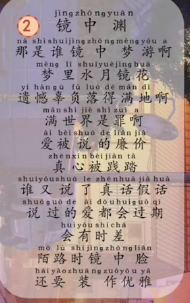 2
jìngzhōngyuān
镜中渊
nà shì shuí jìng zhōng mèng yóu a
那是谁镜中梦游啊
mèng lǐ shuǐ yuè jìng huā
梦里水月镜花
yí hàn gū fù luò dé mǎn dì a
遗憾辜负落得满地啊
mǎn shì jiè shì zuì a
满世界是罪啊
ài bèi shuō de lián jià
爱被说的廉价
zhēn xīn bèi jiàn tà
真心被践踏
shuí yòu shuō le zhēn huà jiǎ huà
谁又说了真话假话
shuō guò de ài dōu huì guò qī
说过的爱都会过期
huì yǒu shí chā
会有时差
mò lù shí jìng zhōng liǎn
陌路时镜中脸
hái yào zhuāng zuò yōu yǎ
还要装作优雅